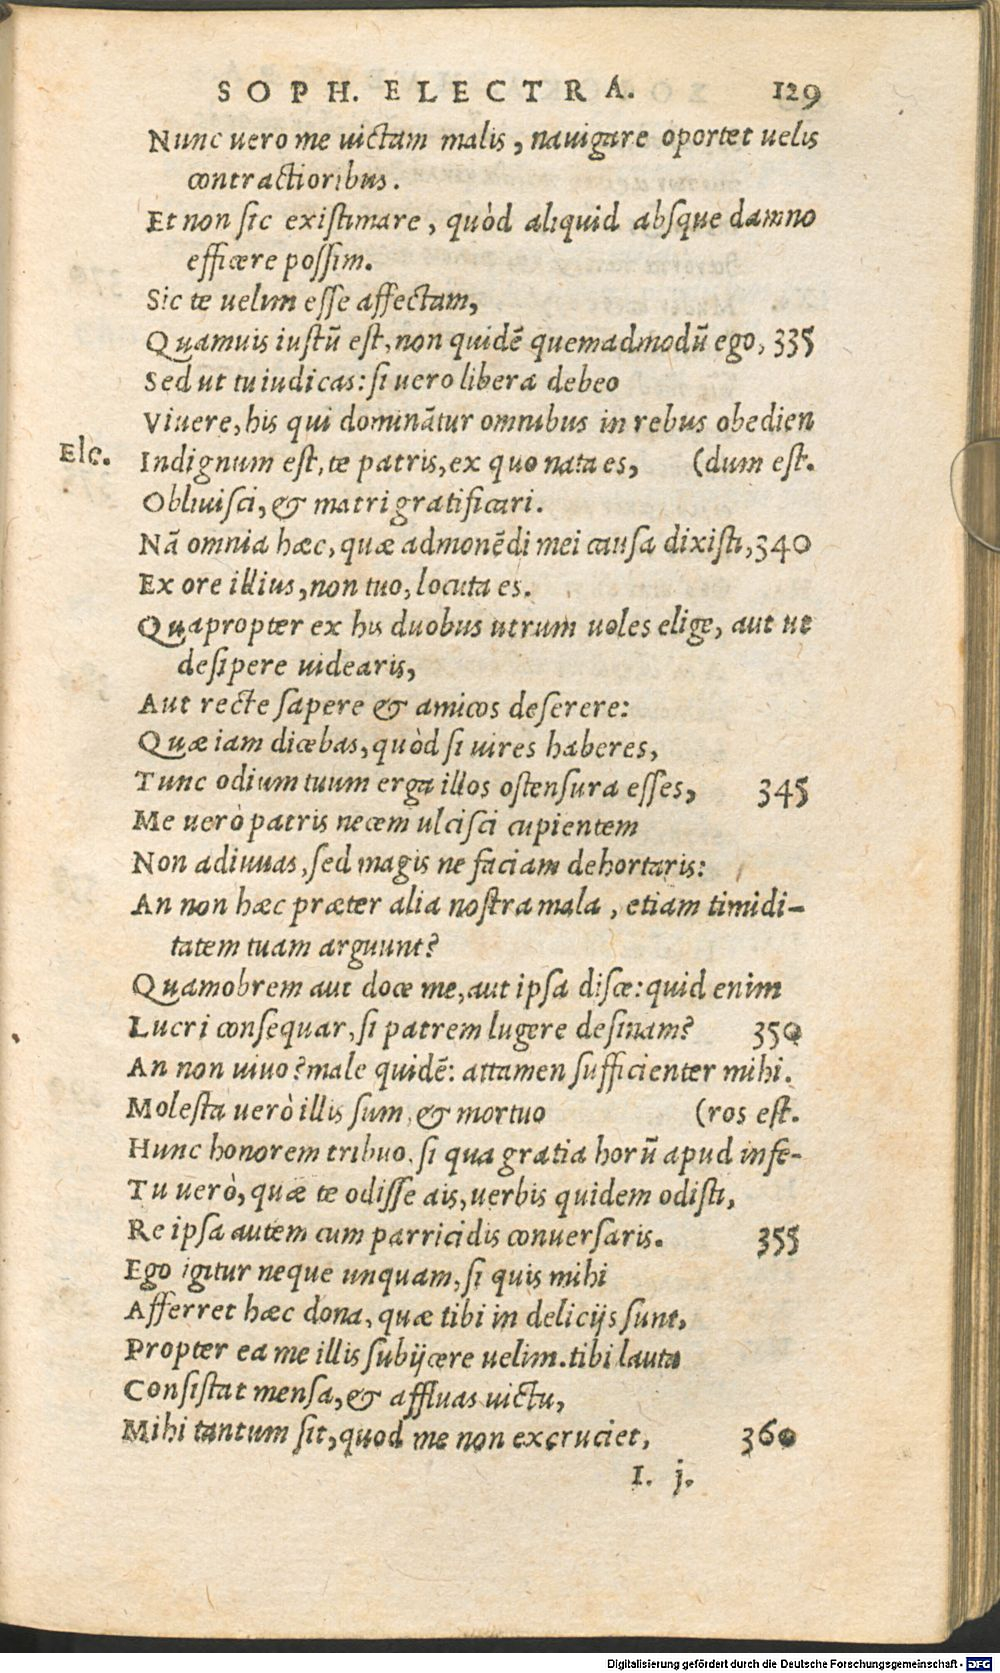 SOPH. ELECTRA. 129
Nunc uero me uictam malis, nauigare oportet uelis
contractioribus.
Et non sic existimare, quòd aliquid absque damno
efficere possim.
Sic te uelim esse affectam,
Quamuis iustũ est, non quidẽ quemadmodũ ego, 335
Sed ut tu iudicas: si uero libera debeo
Viuere, his qui dominãtur omnibus in rebus obedien
Ele. Indignum est, te patris, ex quo nata es, (dum est.
Obliuisci, & matri gratificari.
Nã omnia hæc, quæ admonẽdi mei causa dixisti, 340
Ex ore illius, non tuo, locuta es.
Quapropter ex his duobus utrum uoles elige, aut ut
desipere uidearis,
Aut recte sapere & amicos deserere:
Quæ iam dicebas, quòd si uires haberes,
Tunc odium tuum erga illos ostensura esses, 345
Me uerò patris necem ulcisci cupientem
Non adiuuas, sed magis ne faciam dehortaris:
An non hæc præter alia nostra mala, etiam timidi-
tatem tuam arguunt?
Quamobrem aut doce me, aut ipsa disce: quid enim
Lucri consequar, si patrem lugere desinam? 350
An non uiuo? male quidẽ: attamen sufficienter mihi.
Molesta uerò illis sum, & mortuo (ros est.
Hunc honorem tribuo, si qua gratia horũ apud infe-
Tu uerò, quæ te odisse ais, uerbis quidem odisti,
Re ipsa autem cum parricidis conuersaris. 355
Ego igitur neque unquam, si quis mihi
Afferret hæc dona, quæ tibi in delicijs sunt,
Propter ea me illis subijcere uelim. tibi lauta
Consistat mensa, & affluas uictu,
Mihi tantum sit, quod me non excruciet, 360
I. j.
Digitalisierung gefördert durch die Deutsche Forschungsgemeinschaft - DFG